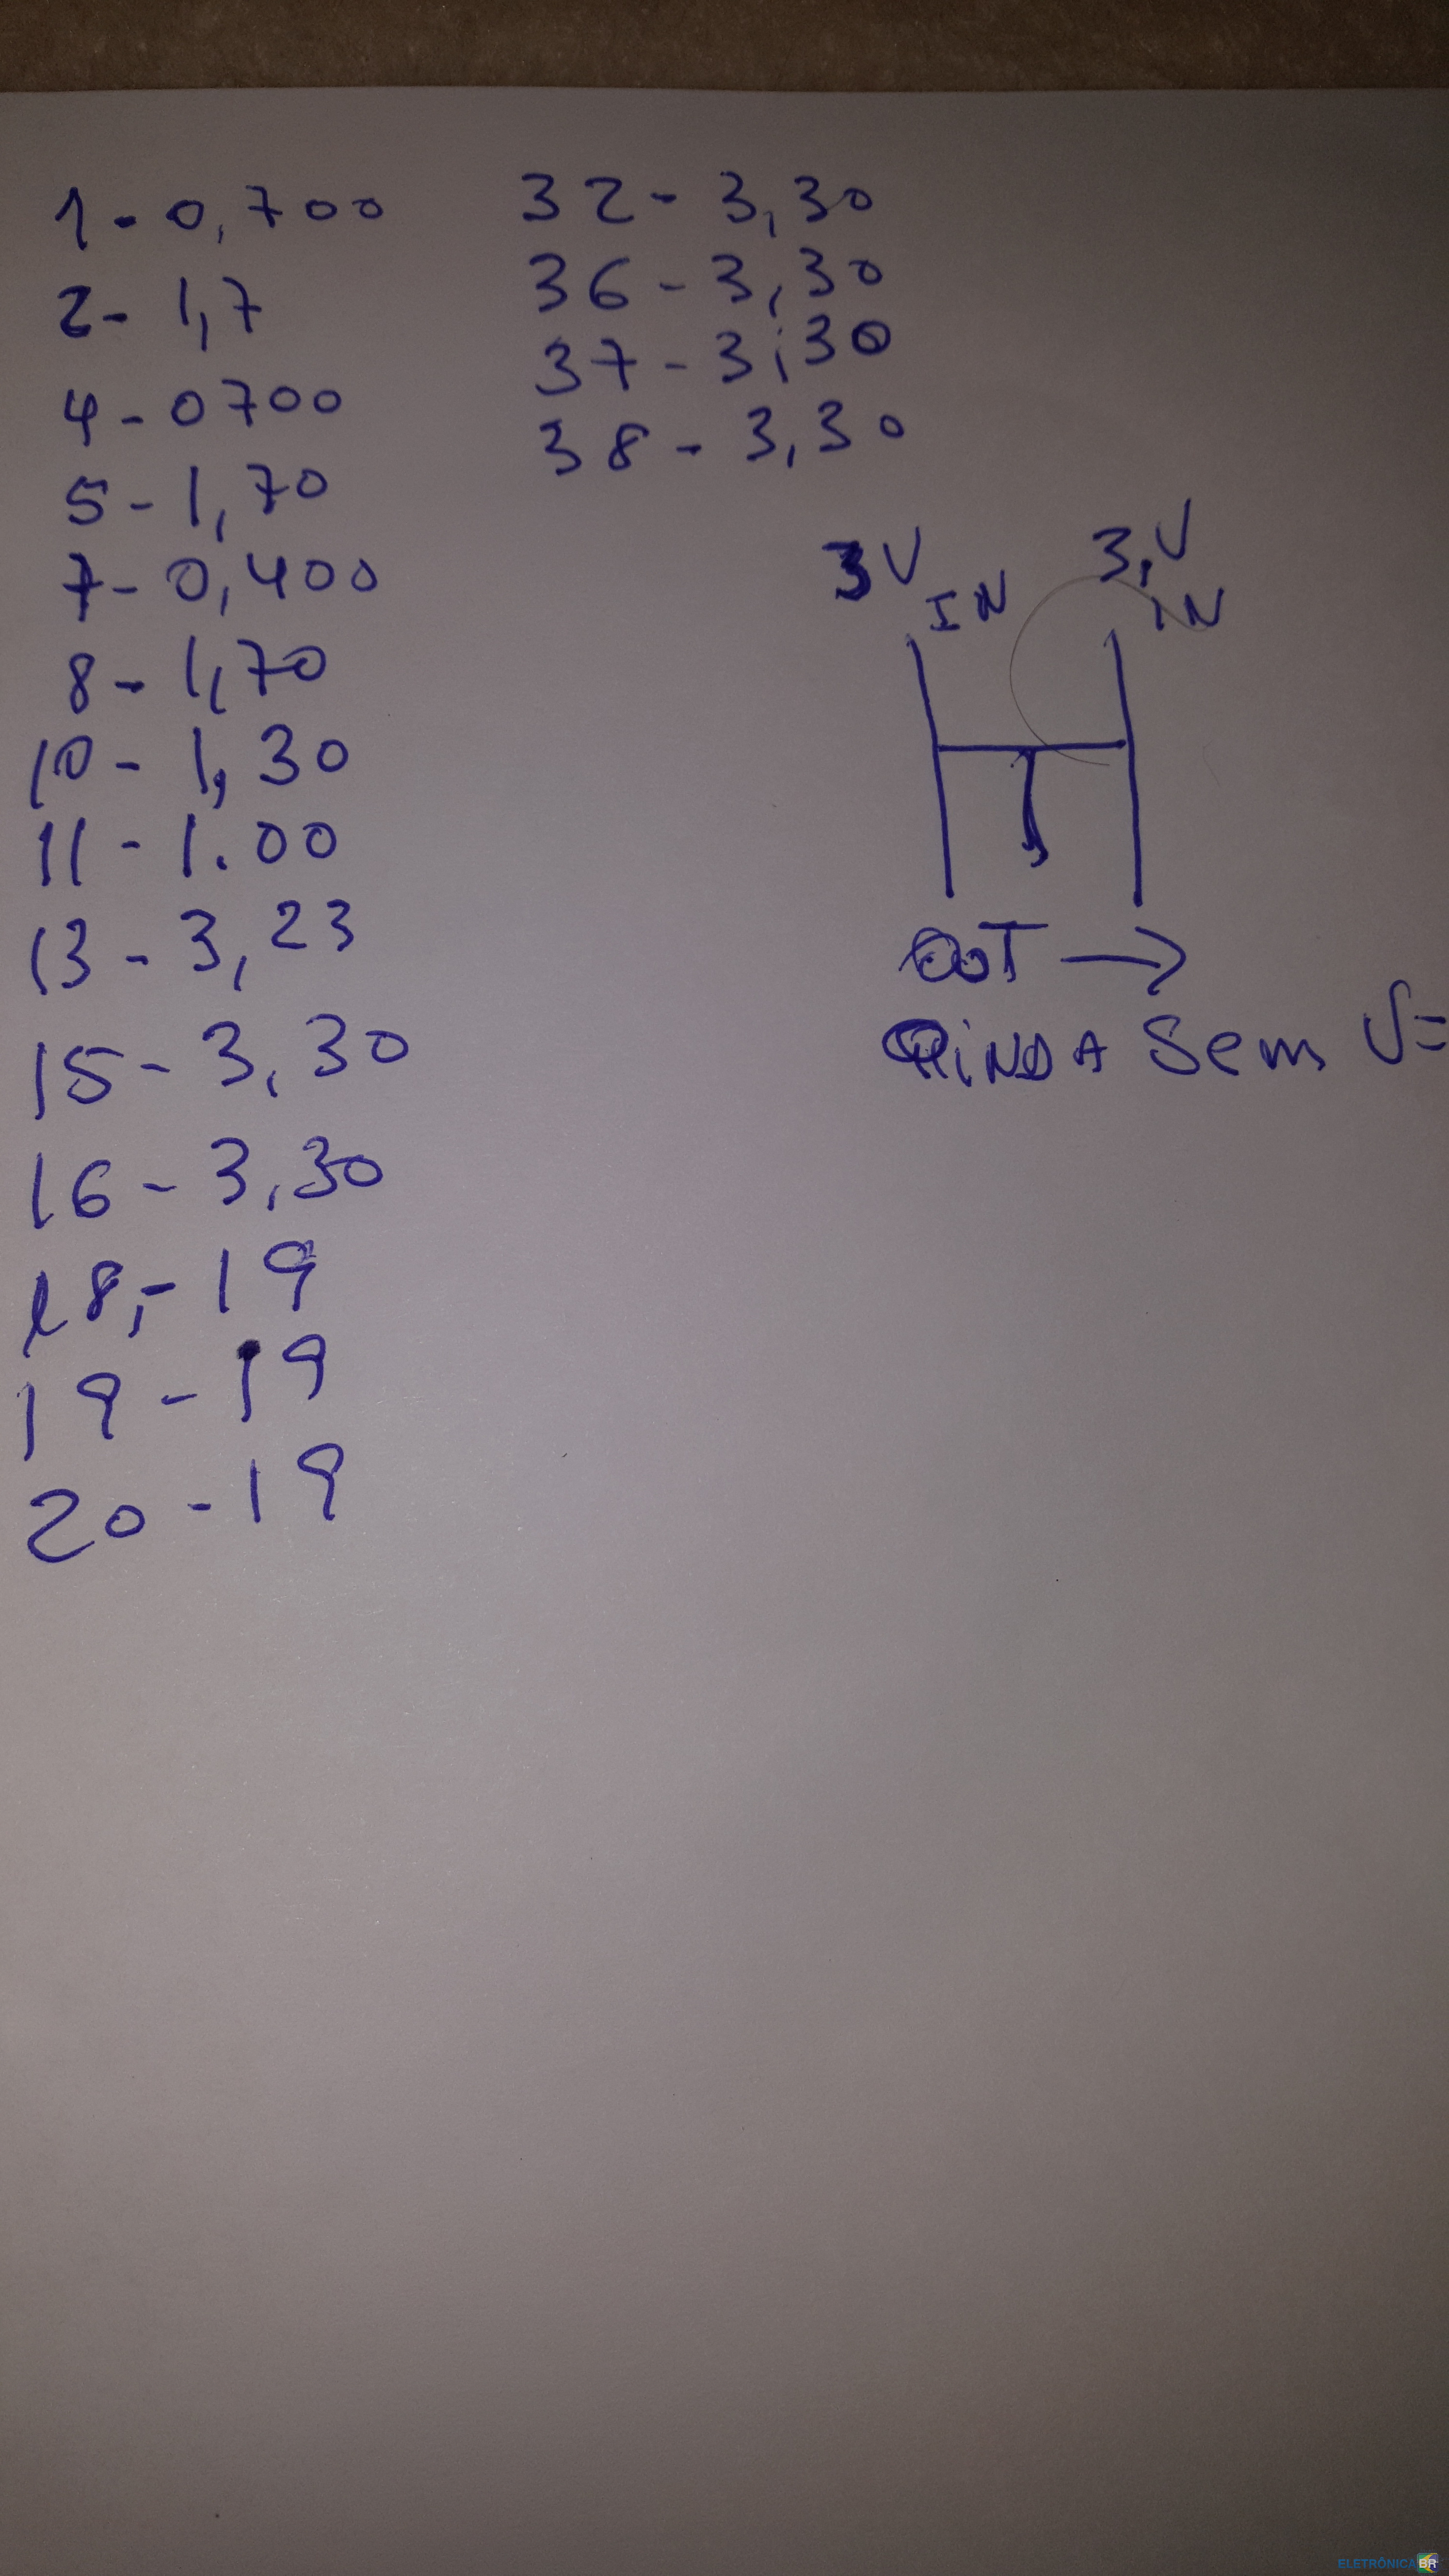 1 - 0,700
2 - 1,7
4 - 0700
5 - 1,70
7 - 0,400
8 - 1,70
10 - 1,30
11 - 1.00
13 - 3,23
15 - 3,30
16 - 3,30
18,- 19
19 - 19
20 - 19
32 - 3,30
36 - 3,30
37 - 3,30
38 - 3,30
3V IN
3,V IN
OOT →
AINDA Sem V=
ELETRÔNICA BR